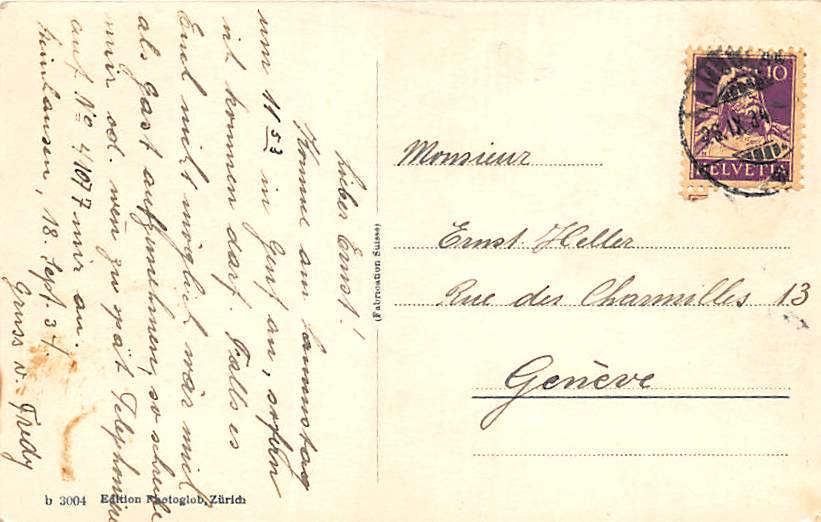 Lieber Ernst!
Komme am Samstag
um 11 53 in Genf an, sofern
ich kommen darf. Falls es
Euch nicht möglich wär mich
als Gast aufzunehmen, so schreibe
mir od. wen zu spät Telephoniere
auf No 41077 mir an.
18. Sept. 34
Gruss v. Fredy
(Fabrication Suisse)
10
HELVETIA
Monsieur
Ernst Heller
Rue des Charmilles 13
Genève
b 3004 Edition Photoglob, Zürich